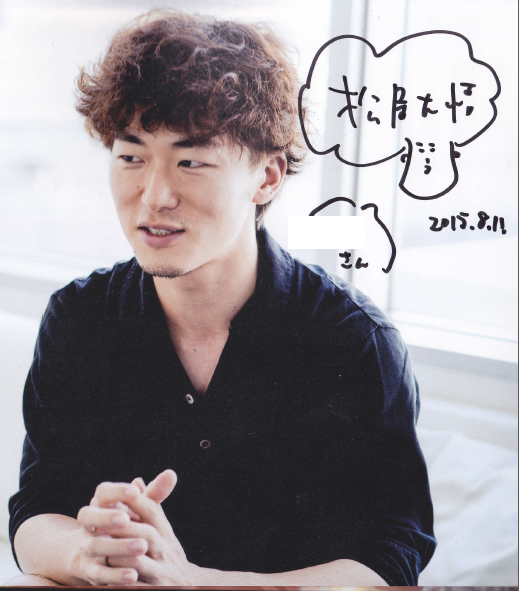 松居大悟
2015.8.11
さん